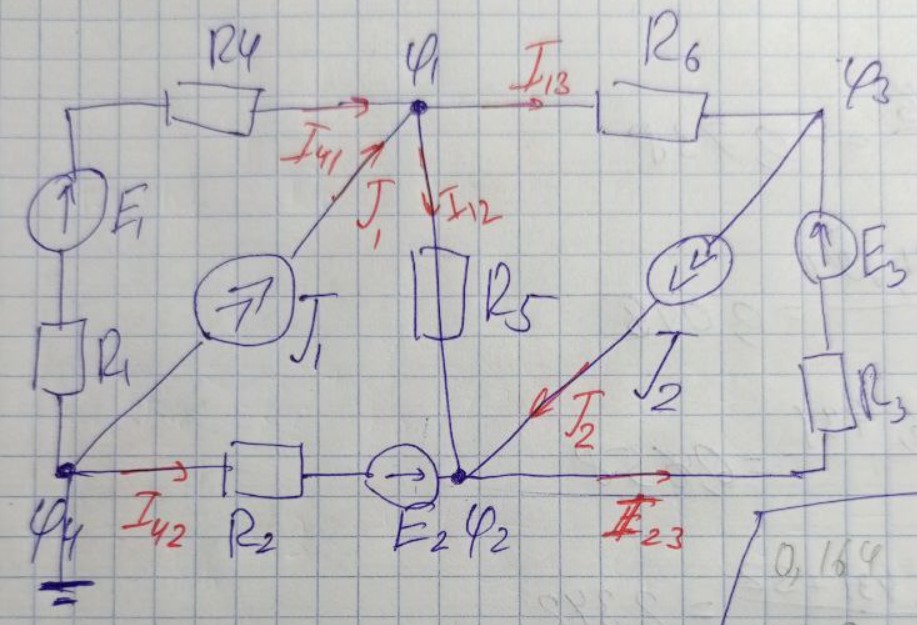 R4
φ1
I13
R6
φ3
I41
J1
I12
E1
J1
R5
J2
E3
R1
J2
R3
φ4
I42
R2
E2
φ2
I23
0,164